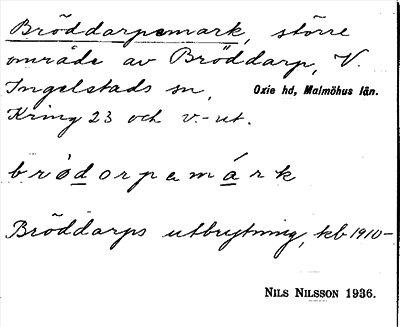 Bröddarpsmark, större
område av Bröddarp, V.
Ingelstads sn, Oxie hd, Malmöhus län.
Kring 23 och v.-ut.
brödorpamárk
Bröddarps utbrytning, kb 1910-
NILS NILSSON 1936.